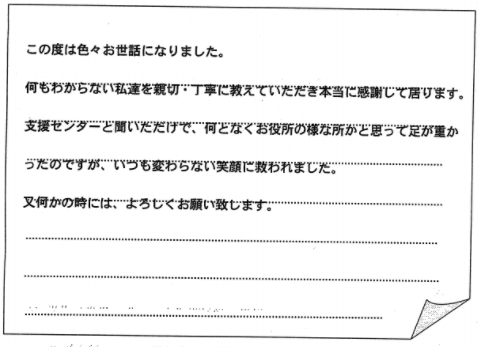 この度は色々お世話になりました。
何もわからない私達を親切・丁寧に教えていただき本当に感謝して居ります。
支援センターと聞いただけで、何となくお役所の様な所かと思って足が重か
ったのですが、いつも変わらない笑顔に救われました。
又何かの時には、よろしくお願い致します。